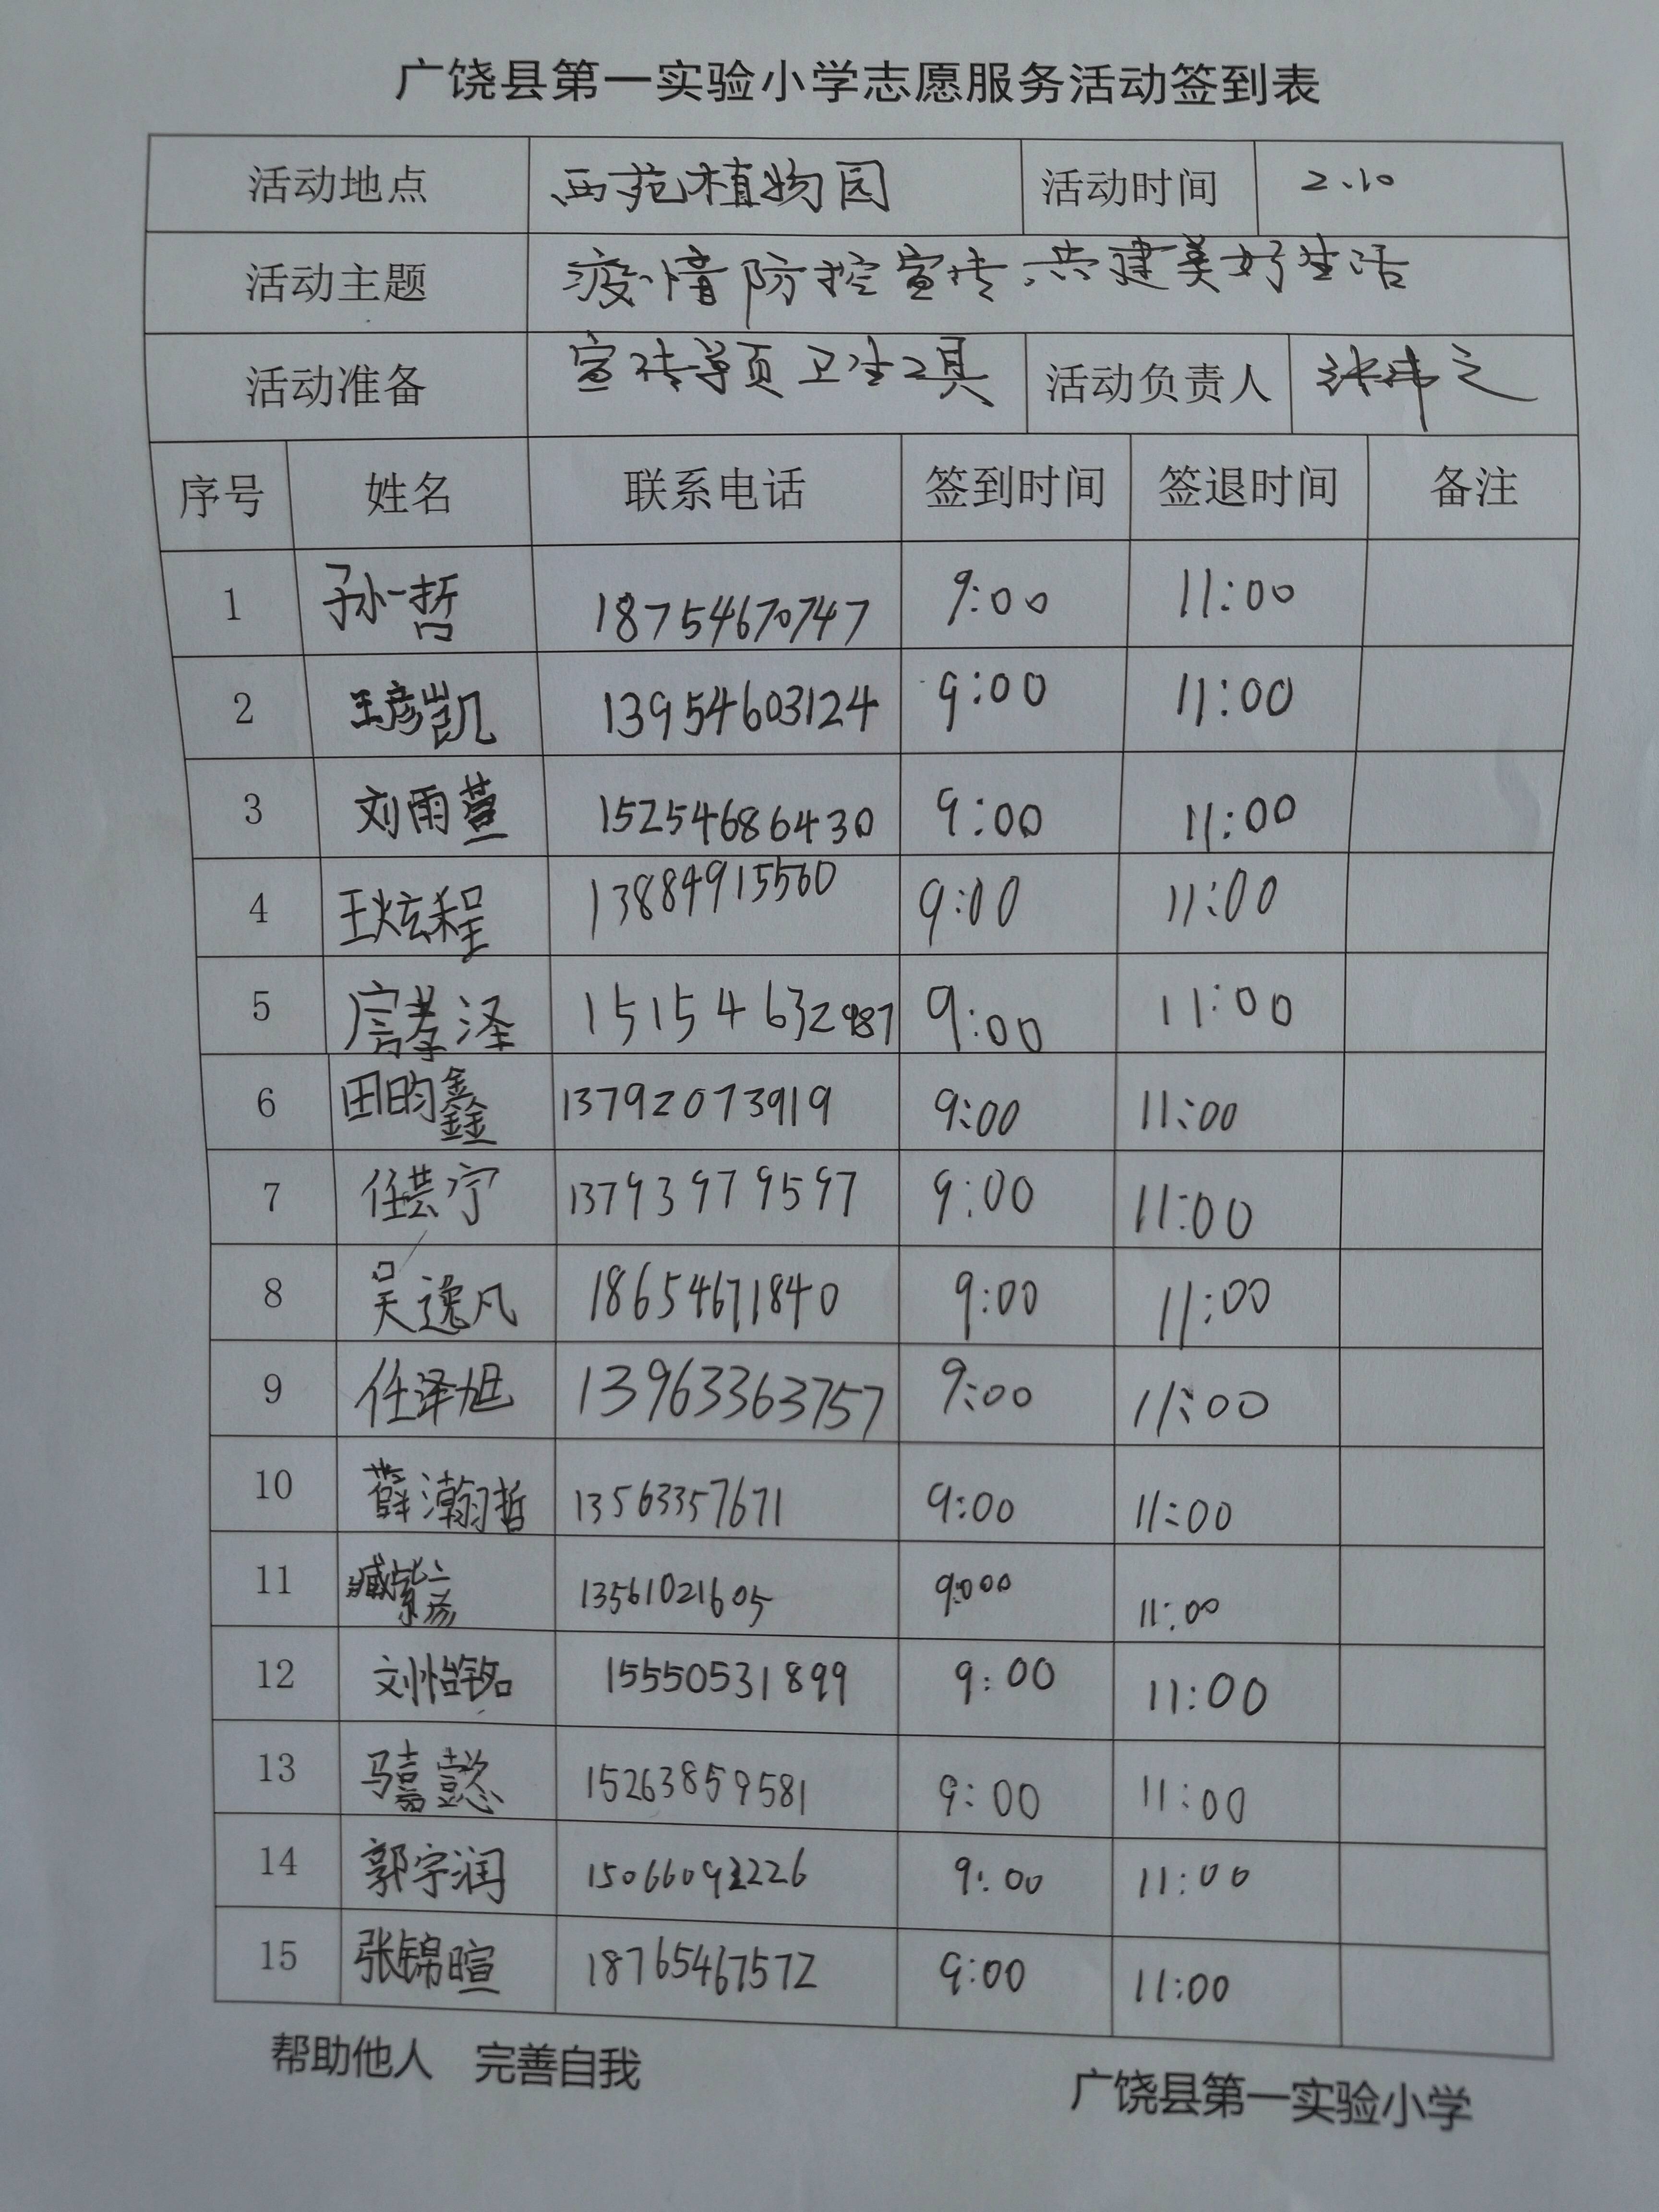 广饶县第一实验小学志愿服务活动签到表
活动地点 西苑植物园 活动时间 2.10
活动主题 疫情防控宣传,共建美好生活
活动准备 宣传单页 卫生工具 活动负责人 张
序号 姓名 联系电话 签到时间 签退时间 备注
1 孙一哲 18754670747 9:00 11:00
2 王彦凯 13954603124 9:00 11:00
3 刘雨萱 15254686430 9:00 11:00
4 王炫程 13884915560 9:00 11:00
5 孝泽 15154632987 9:00 11:00
6 田昀鑫 13792073919 9:00 11:00
7 任芸宁 13793979597 9:00 11:00
8 吴逸凡 18654671840 9:00 11:00
9 任泽旭 13963363757 9:00 11:00
10 薛瀚哲 13563357671 9:00 11:00
11 臧紫 13561021605 9:000 11:00
12 刘怡铭 15550531899 9:00 11:00
13 马嘉懿 15263859581 9:00 11:00
14 郭宇润 9:00 11:00
15 张锦暄 18765467572 9:00 11:00
帮助他人 完善自我
广饶县第一实验小学